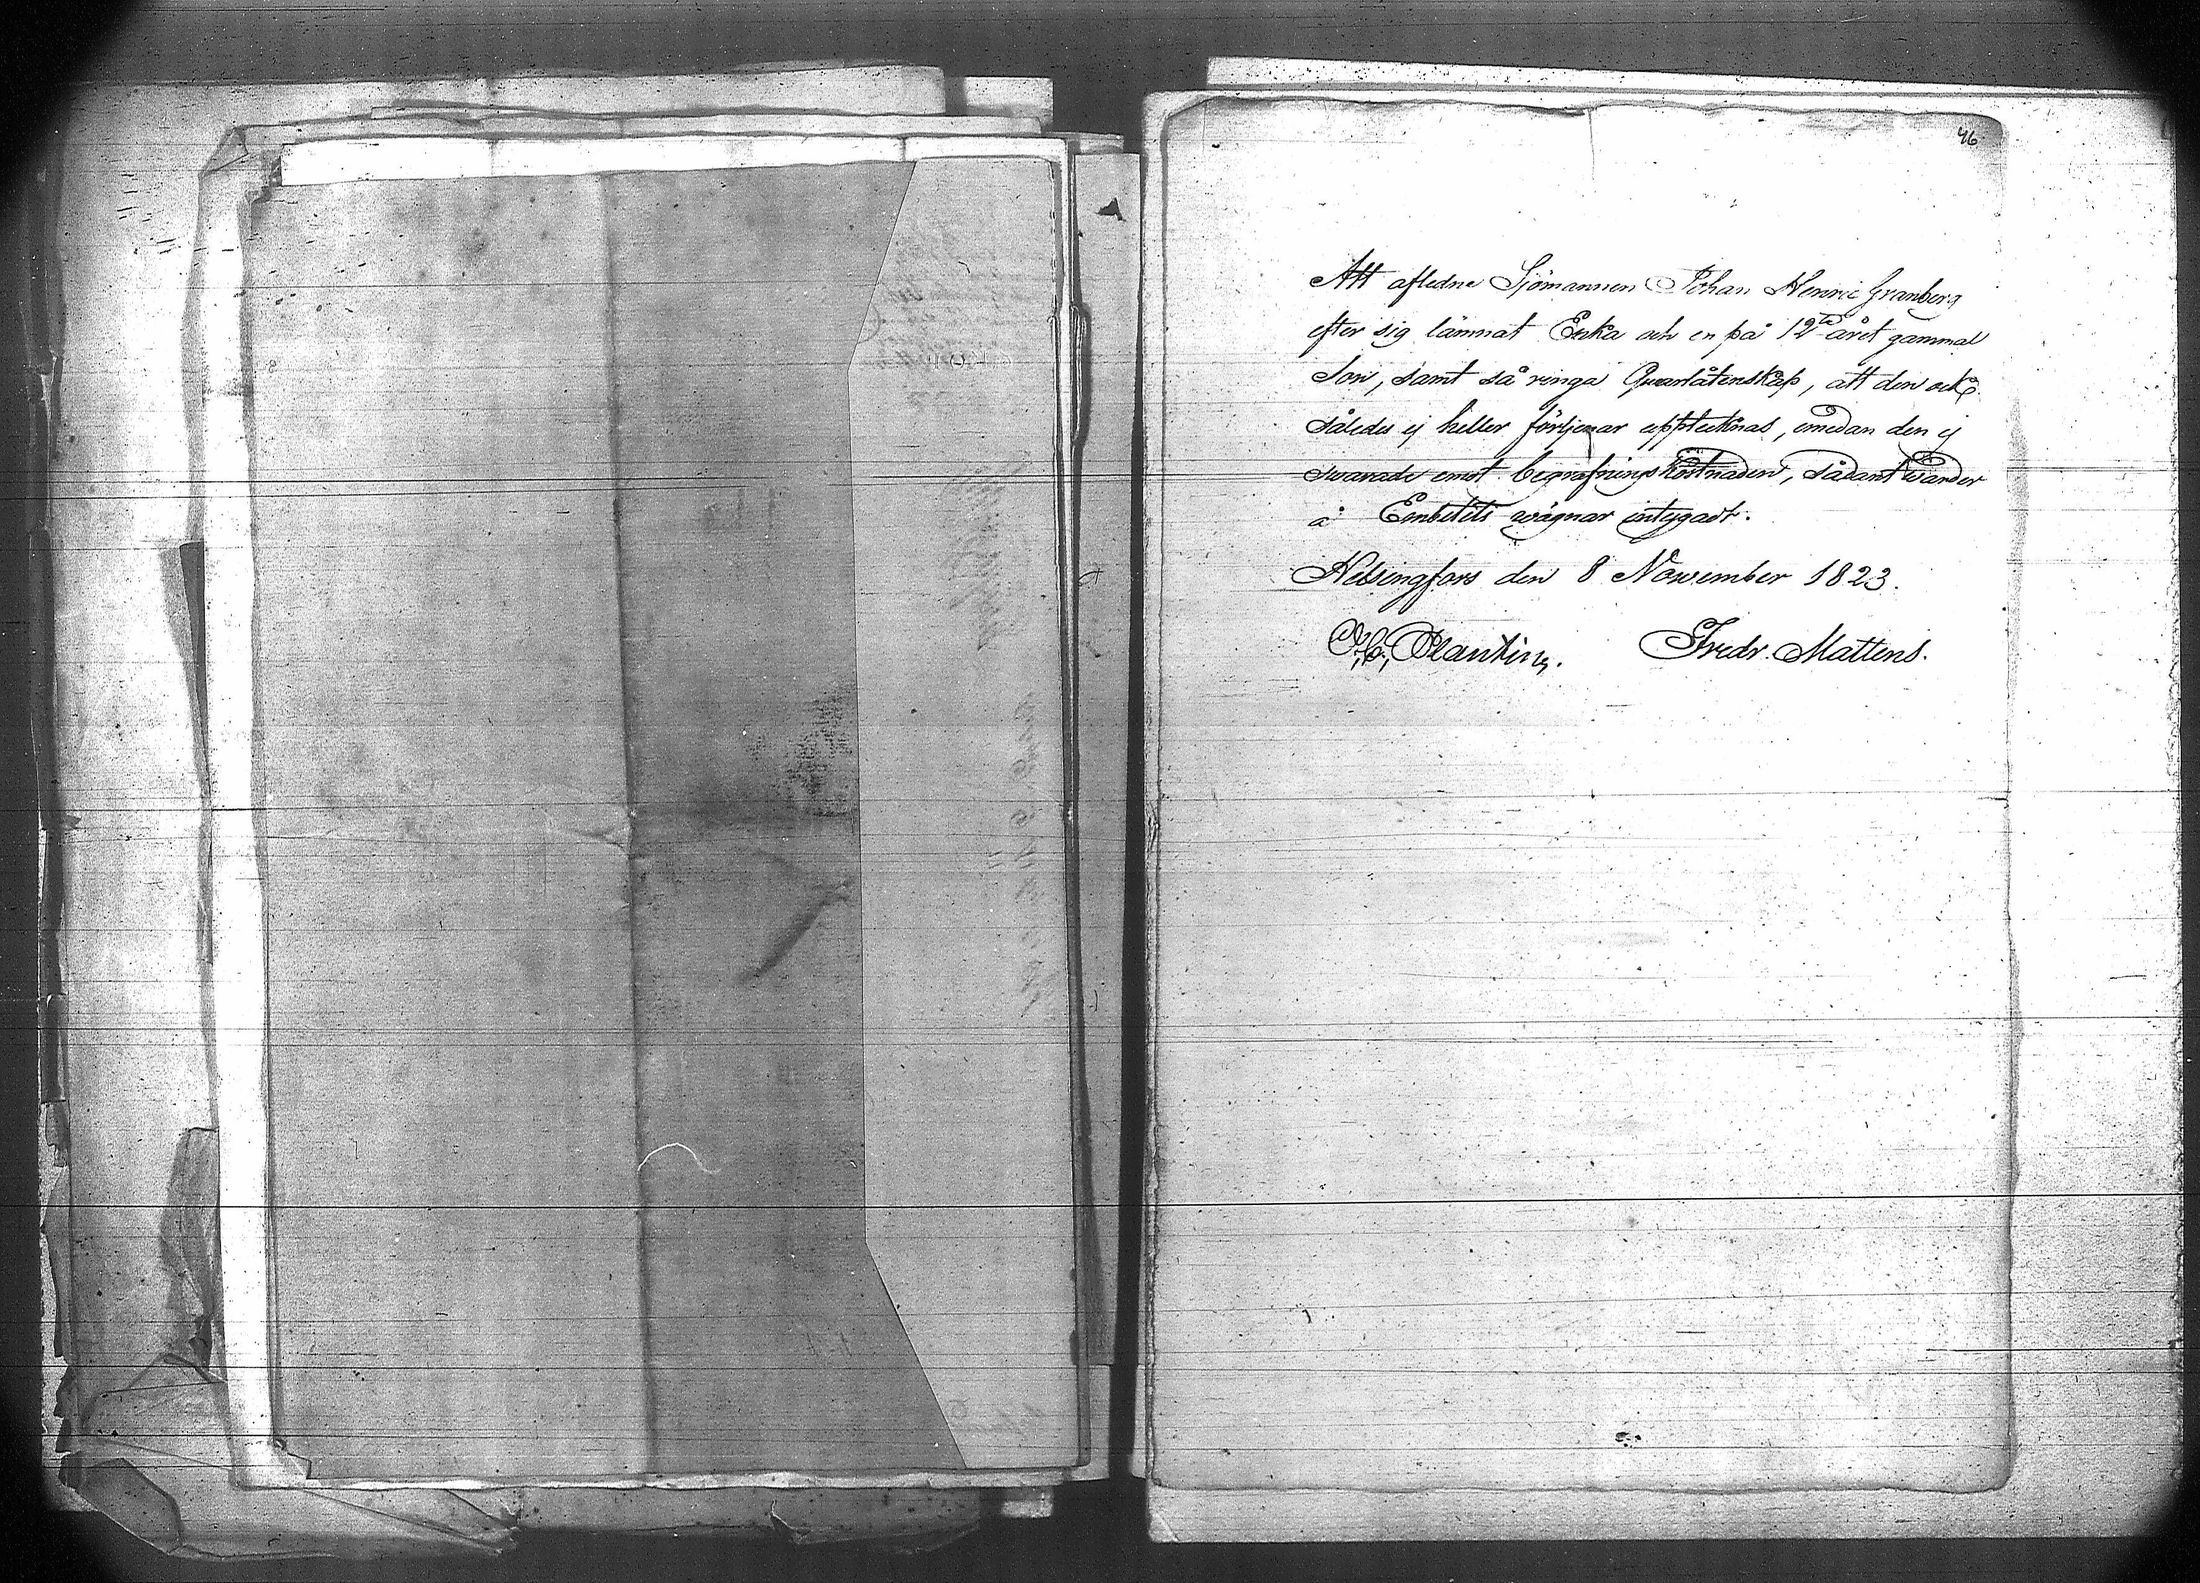 46
Att afledne Sjömannen Johan Henric Granberg
efter sig lämnat Enka och en på 12te året gammal
Son, samt så ringa Quarlåtenskap, att den ock
således ej heller förtjenar uppteknas, emedan den ej
swarade emot begrafningskostnaden, sådant warder
å Embetets wägnar intygadt.
Helsingfors den 8 November 1823.
Fredr. Mattens.